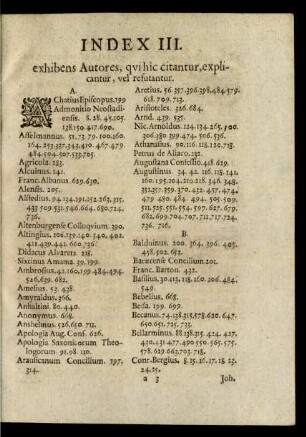 INDEX III.
exhibens Autores, qvi hic citantur, expli-
cantur, vel refutantur.
A.
AChatius Episcopus. 199
Admonitio Neostadi-
ensis. 8. 28. 45. 105.
138. 150. 417. 690.
Affelmannus. 51. 73. 79. 100. 160.
164. 253. 337. 343. 410. 467. 479
484. 504. 507. 533. 705.
Agricola. 183.
Alcuinus. 141.
Franc. Albanus. 629. 630.
Alensis. 205.
Alstedius. 94. 134. 191. 252. 263. 315.
433. 509. 531. 546. 664. 680. 724.
736.
Altenburgense Colloqvium. 390.
Altingius. 106. 139. 240. 340. 402.
411. 439. 441. 660. 736.
Didacus Alvares. 218.
Sixtinus Amama. 39. 199.
Ambrosius. 41. 160. 199. 484. 494.
526. 639. 682.
Amesius. 53. 438.
Amyraldus. 366.
Anhaltini. 80. 440.
Anonymus. 668.
Anshelmus. 526. 650. 711.
Apologia Aug. Conf. 626.
Apologia Saxonicorum Theo-
logorum. 91. 98. 110.
Arausicanum Concilium. 197.
314.
Aretius. 56. 357. 396. 398. 484. 579.
618. 709. 713.
Aristoteles. 326. 684.
Arnd. 439. 535.
Nic. Arnoldus. 124. 134. 265. 300.
306. 380. 399. 474. 506. 536.
Athanasius. 90. 116. 118. 120. 718.
Petrus de Aliaco. 232.
Augustana Confessio. 418. 629.
Augustinus. 34. 42. 116. 118. 141.
160. 195. 204. 211. 218. 320. 348.
351. 357. 359. 370. 432. 457. 474.
479. 480. 494. 498. 505. 509.
511. 525. 551. 554. 597. 627. 679.
682. 699. 704. 707. 712. 717. 724.
736. 716.
B.
Balduinus. 200. 364. 396. 405.
458. 502. 652.
Bararense Concilium. 201.
Franc. Barton. 432.
Basilius. 30. 113. 118. 160. 206. 484.
549.
Babelius. 668.
Beda. 199. 699.
Becanus. 74. 138. 315. 578. 620. 647.
650. 651. 725. 733.
Bellarminus. 88. 138. 315. 424. 427.
430. 431. 477. 490. 550. 565. 575.
578. 629. 662. 703. 718.
Conr. Bergius. 8. 15. 16. 17. 18. 23.
24. 25.
a 3
Joh.